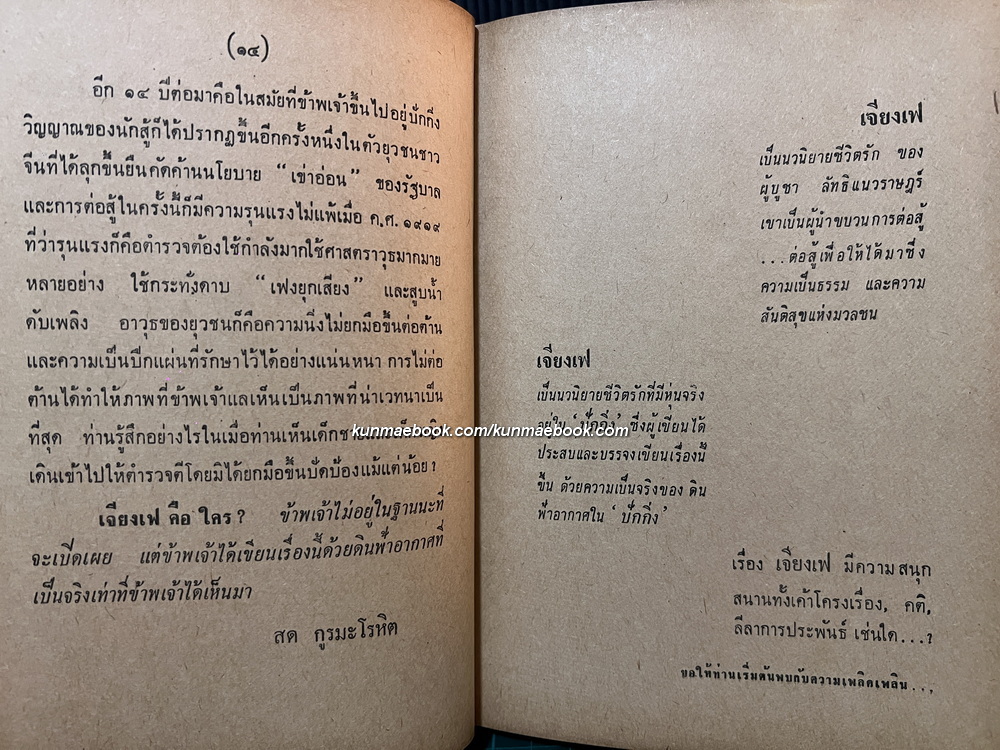 (๑๔)
อีก ๑๔ ปีต่อมาคือในสมัยที่ข้าพเจ้าขึ้นไปอยู่ปักกิ่ง
วิญญาณของนักสู้ก็ได้ปรากฏขึ้นอีกครั้งหนึ่งในตัวยุวชนชาว
จีนที่ได้ลุกขึ้นยืนคัดค้านนโยบาย “เข่าอ่อน” ของรัฐบาล
และการต่อสู้ในครั้งนี้ก็มีความรุนแรงไม่แพ้เมื่อ ค.ศ. ๑๙๑๙
ที่ว่ารุนแรงก็คือตำรวจต้องใช้กำลังมากใช้ศาสตราวุธมากมาย
หลายอย่าง ใช้กระทั่งดาบ “เฟงยุกเสียง” และสูบน้ำ
ดับเพลิง อาวุธของยุวชนก็คือความนิ่งไม่ยกมือขึ้นต่อต้าน
และความเป็นปึกแผ่นที่รักษาไว้ได้อย่างแน่นหนา การไม่ต่อ
ต้านได้ทำให้ภาพที่ข้าพเจ้าแลเห็นเป็นภาพที่น่าเวทนาเป็น
ที่สุด ท่านรู้สึกอย่างไรในเมื่อท่านเห็นเด็ก
เดินเข้าไปให้ตำรวจตีโดยมิได้ยกมือขึ้นปัดป้องแม้แต่น้อย?
เจียงเฟ คือ ใคร? ข้าพเจ้าไม่อยู่ในฐานะที่
จะเปิดเผย แต่ข้าพเจ้าได้เขียนเรื่องนี้ด้วยดินฟ้าอากาศที่
เป็นจริงเท่าที่ข้าพเจ้าได้เห็นมา
สด กูรมะโรหิต
เจียงเฟ
เป็นนวนิยายชีวิตรัก ของ
ผู้บูชา ลัทธิแนวราษฎร์
เขาเป็นผู้นำขบวนการต่อสู้
...ต่อสู้เพื่อให้ได้มาซึ่ง
ความเป็นธรรม และความ
สันติสุขแห่งมวลชน
เจียงเฟ
เป็นนวนิยายชีวิตรักที่มีหุ่นจริง
อยู่ใน ‘ปักกิ่ง’ ซึ่งผู้เขียนได้
kunmaebook.com/kunmaebook.com
ประสบและบรรจงเขียนเรื่องนี้
ขึ้น ด้วยความเป็นจริงของ ดิน
ฟ้าอากาศใน ‘ปักกิ่ง’
เรื่อง เจียงเฟ มีความสนุก
สนานทั้งเค้าโครงเรื่อง, คติ,
ลีลาการประพันธ์ เช่นใด...?
ขอให้ท่านเริ่มต้นพบกับความเพลิดเพลิน...